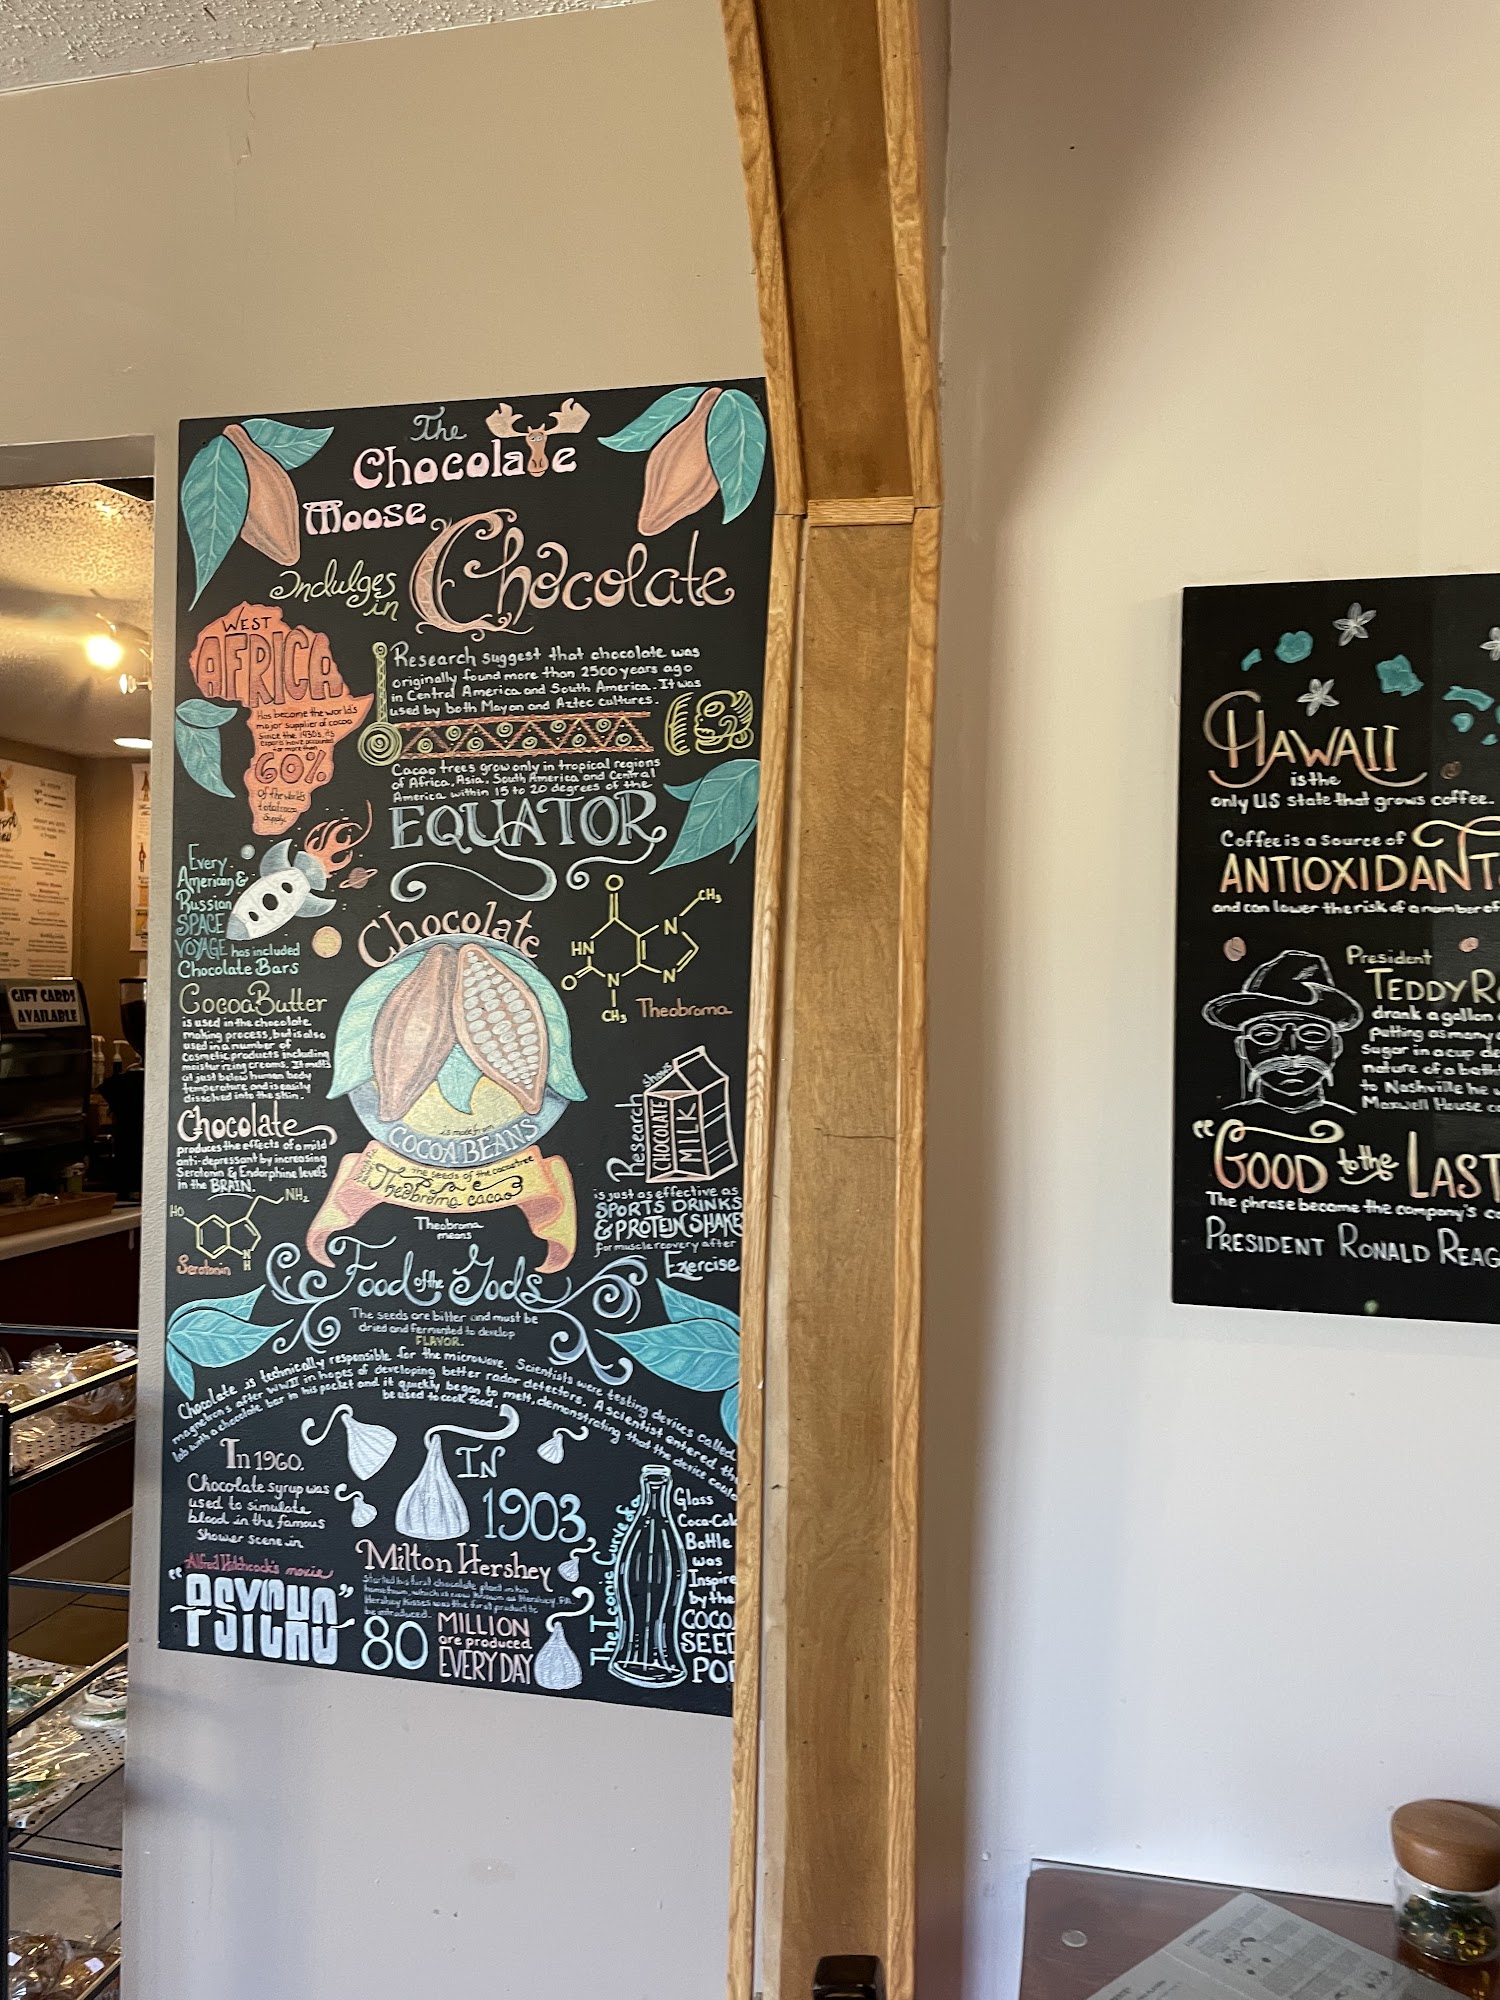 The
Chocolate
Moose
Indulges
in
Chocolate
WEST
AFRICA
Has become the world's
major supplier of cocoa
Since the 1930's, its
exports have accounted
for more than
60%
of the world's
total cocoa
supply.
Research suggest that chocolate was
originally found more than 2500 years ago
in Central America and South America. It was
used by both Mayan and Aztec cultures.
Cacao trees grow only in tropical regions
of Africa, Asia, South America and Central
America within 15 to 20 degrees of the
EQUATOR
Every
American &
Russian
SPACE
VOYAGE has included
Chocolate Bars
Cocoa Butter
is used in the chocolate
making process, but is also
used in a number of
cosmetic products including
moisturizing creams. It melts
at just below human body
temperature and is easily
dissolved into the skin.
Chocolate
produces the effects of a mild
anti-depressant by increasing
Serotonin & Endorphine levels
in the BRAIN.
HO
NH₂
N
H
Serotonin
Chocolate
is made from
COCOA BEANS
the seeds of the cacao tree
Theobroma cacao
Theobroma
means
Food of the Gods
The seeds are bitter and must be
dried and fermented to develop
FLAVOR.
O
CH₃
HN
N
O
N
N
CH₃
Theobroma
Research shows
CHOCOLATE
MILK
is just as effective as
SPORTS DRINKS
& PROTEIN SHAKE
for muscle recovery after
Exercise
Chocolate is technically responsible for the microwave. Scientists were testing devices called
magnetrons after WWII in hopes of developing better radar detectors. A scientist entered the
lab with a chocolate bar in his pocket and it quickly began to melt, demonstrating that the device could
be used to cook food.
In 1960.
Chocolate syrup was
used to simulate
blood in the famous
Shower scene in
Alfred Hitchcock's movie
"PSYCHO"
IN
1903,
Milton Hershey
started his first chocolate plant in his
hometown, which is now known as Hershey, PA.
Hershey Kisses was the first product to
be introduced.
80
MILLION
are produced
EVERY DAY
The Iconic Curve of a
Glass
Coca-Cola
Bottle
was
Inspire
by the
COCOA
SEED
POD
HAWAII
is the
only US state that grows coffee.
Coffee is a source of
ANTIOXIDANT
and can lower the risk of a number of
President
TEDDY R
drank a gallon
putting as many
sugar in a cup
nature of a bath
to Nashville he
Maxwell House
"GOOD to the LAST
The phrase became the company's
PRESIDENT RONALD REAG
GIFT CARDS
AVAILABLE